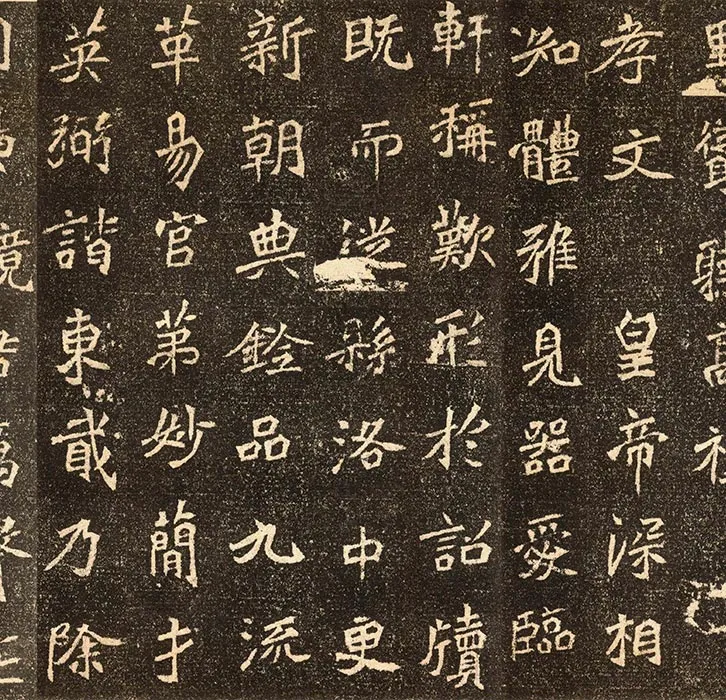 高祖
孝文皇帝深相
知體雅見器愛臨
軒稱歎形於詔牘
既而徙縣洛中更
新朝典銓品九流
革易官第妙簡才
英弼諧東戢乃除
境